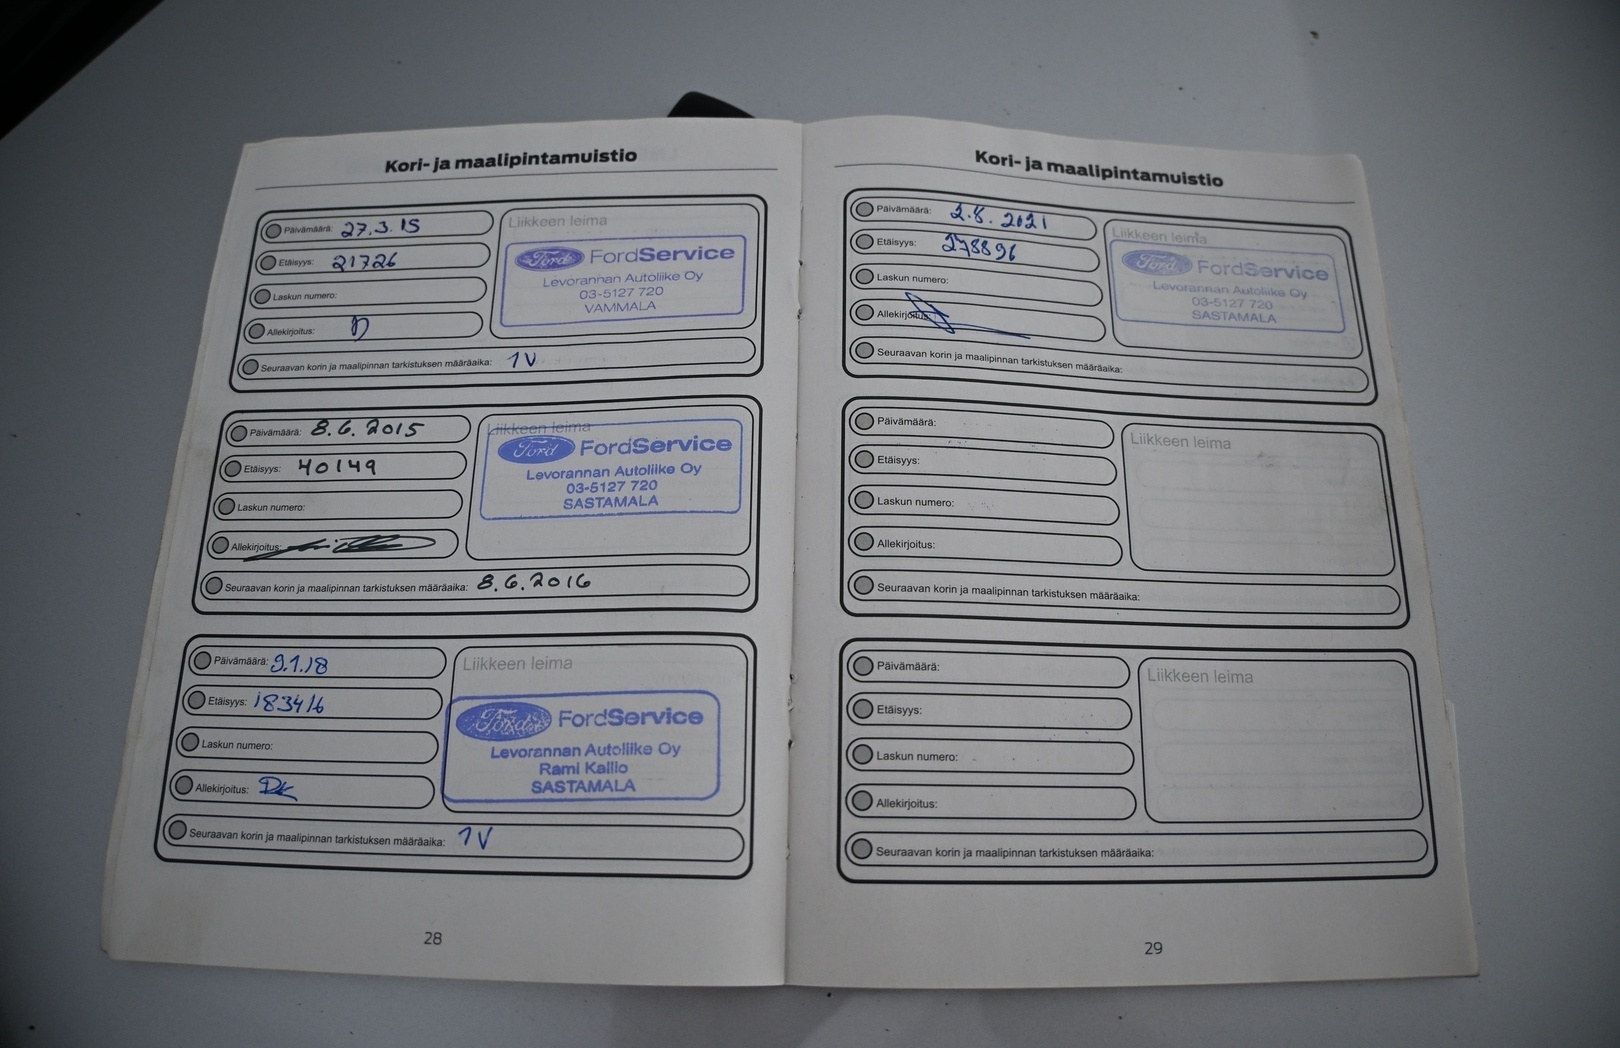 Kori- ja maalipintamuistio
Päivämäärä: 27.3.15
Etäisyys: 21726
Laskun numero:
Allekirjoitus:
Seuraavan korin ja maalipinnan tarkistuksen määräaika: 1V
Liikkeen leima
Ford FordService
Levorannan Autoliike Oy
03-5127 720
VAMMALA
Päivämäärä: 8.6.2015
Etäisyys: 40149
Laskun numero:
Allekirjoitus:
Seuraavan korin ja maalipinnan tarkistuksen määräaika: 8.6.2016
Liikkeen leima
Ford FordService
Levorannan Autoliike Oy
03-5127 720
SASTAMALA
Päivämäärä: 9.1.18
Etäisyys: 183416
Laskun numero:
Allekirjoitus:
Seuraavan korin ja maalipinnan tarkistuksen määräaika: 1V
Liikkeen leima
Ford FordService
Levorannan Autoliike Oy
Rami Kallio
SASTAMALA
28
Kori- ja maalipintamuistio
Päivämäärä: 2.8.2021
Etäisyys: 278896
Laskun numero:
Allekirjoitus:
Seuraavan korin ja maalipinnan tarkistuksen määräaika:
Liikkeen leima
Ford FordService
Levorannan Autoliike Oy
03-5127 720
SASTAMALA
Päivämäärä:
Etäisyys:
Laskun numero:
Allekirjoitus:
Seuraavan korin ja maalipinnan tarkistuksen määräaika:
Liikkeen leima
Päivämäärä:
Etäisyys:
Laskun numero:
Allekirjoitus:
Seuraavan korin ja maalipinnan tarkistuksen määräaika:
Liikkeen leima
29